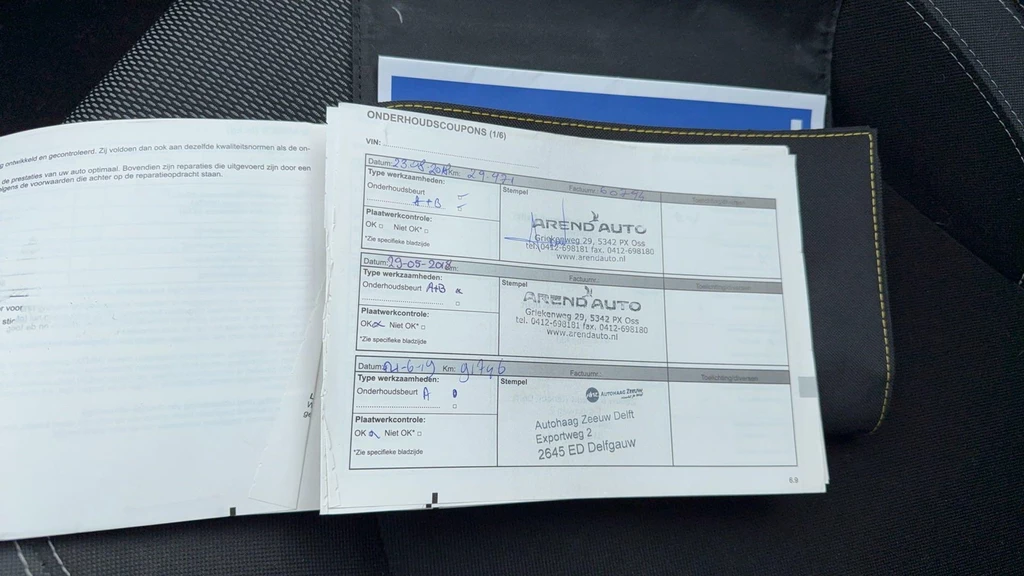 g ontwikkeld en gecontroleerd. Zij voldoen dan ook aan dezelfde kwaliteitsnormen als de on-
de prestaties van uw auto optimaal. Bovendien zijn reparaties die uitgevoerd zijn door een
lgens de voorwaarden die achter op de reparatieopdracht staan.
r voor
ONDERHOUDSCOUPONS (1/6)
VIN:
Datum: Km: 29.471 Factuurnr.:
Type werkzaamheden: Stempel
Onderhoudsbeurt
A+B
Plaatwerkcontrole:
OK □ Niet OK* □
*Zie specifieke bladzijde
AREND AUTO
Griekenweg 29, 5342 PX Oss
tel. 0412-698181 fax. 0412-698180
www.arendauto.nl
Datum: 29-05-2018 Km: Factuurnr.:
Type werkzaamheden: Stempel
Onderhoudsbeurt A+B
Plaatwerkcontrole:
OK Niet OK* □
*Zie specifieke bladzijde
AREND AUTO
Griekenweg 29, 5342 PX Oss
tel. 0412-698181 fax. 0412-698180
www.arendauto.nl
Datum: 21-6-19 Km: 91746 Factuurnr.:
Type werkzaamheden: Stempel
Onderhoudsbeurt A
Plaatwerkcontrole:
OK Niet OK* □
*Zie specifieke bladzijde
AUTOHAAG ZEEUW
Autohaag Zeeuw Delft
Exportweg 2
2645 ED Delfgauw
6.9